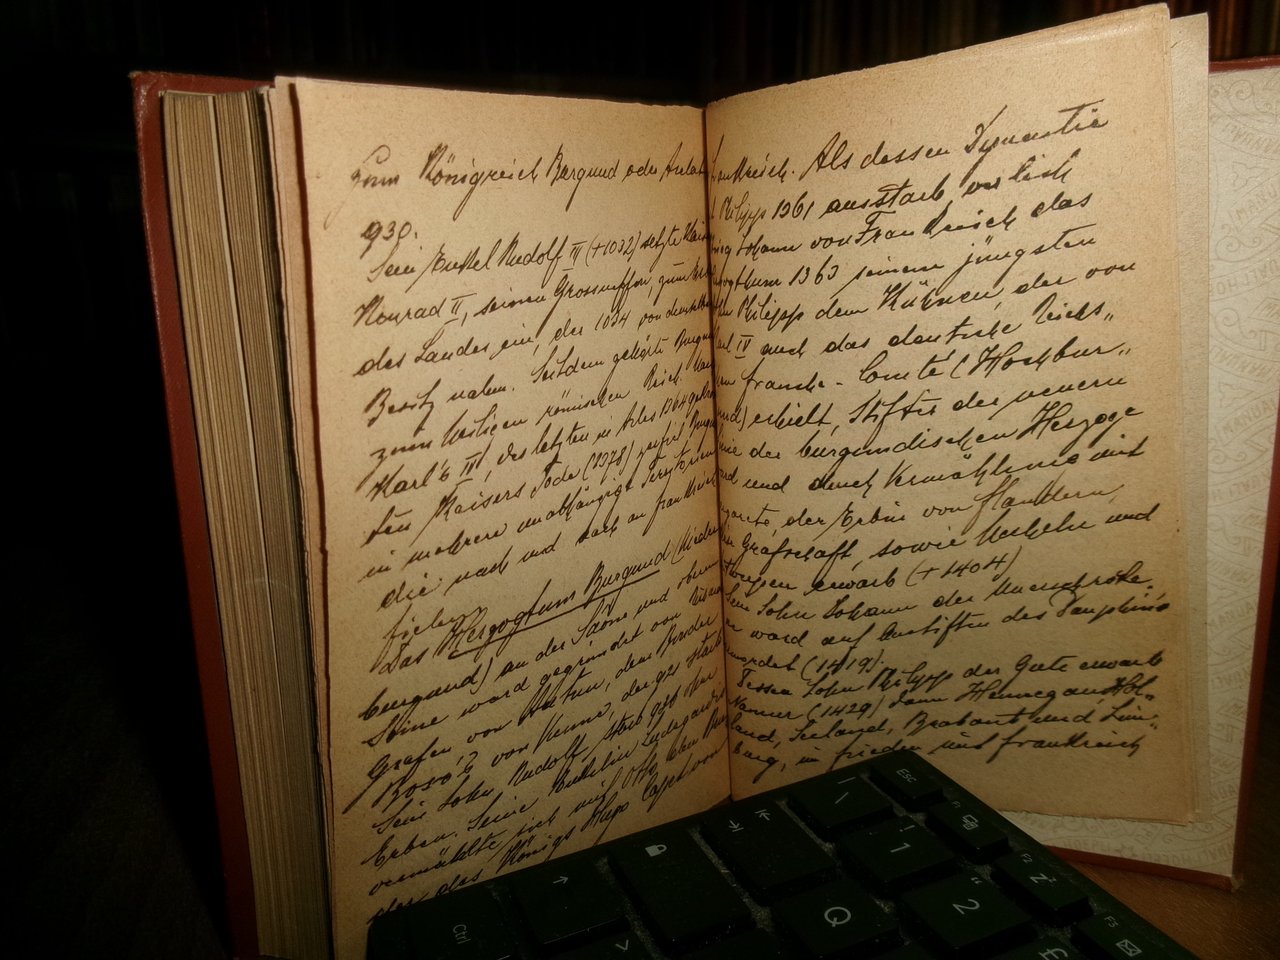 zum Königreich Burgund oder Arelat
930.
Sein Enkel Rudolf III (+1032) setzte Kais
Konrad II, seinen Grossneffen zum Erb
des Landes ein, der 1034 von demselb
Besitz nahm. Seitdem gehörte Burgun
zum heiligen römischen Reich. Nach
Karl's IV, des letzten in Arles 1364 gekrön
ten Kaisers Tode (1378) zerfiel Burgun
in mehrere unabhängige Territorien
die nach und nach an Frankreich
fielen.
Das Herzogtum Burgund (Nieder
burgund) an der Saône und obern
Seine ward gegründet von
Grafen von Autun, dem Bruder
Boso's von Vienne, der starb
Sein Sohn Rudolf starb ohne
Erben. Seine
vermählte sich mit Otto, dem Bru
der des Königs Hugo Capet von
Frankreich. Als dessen Dynastie
Philipp 1361 ausstarb, verlieh
König Johann von Frankreich das
Herzogthum 1363 seinem jüngsten
Philipp dem Kühnen, der von
Karl IV auch das deutsche Reichs„
franche-Comté (Hochbur„
gund) erhielt, Stifter der neuern
Linie der burgundischen Herzoge
ward und durch Vermählung mit
Margareta, der Erbin von Flandern,
Grafschaft, sowie Mecheln und
Antwerpen erwarb (+1404)
Sein Sohn Johann der Unerschrokke.
ner ward auf Anstiften des Dauphin's
ermordet (1419).
Dessen Sohn Philipp der Gute erwarb
Namur (1429) dann Hennegau, Hol„
land, Seeland, Brabant und Lim„
burg, in frieden mit frankreich
Esc
F1
! 1
F2
Q
" 2
F3
£
Ctrl
>